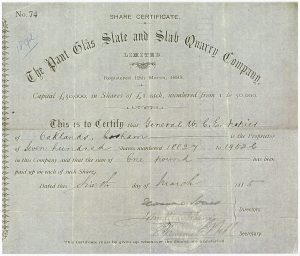 No. 74
SHARE CERTIFICATE.
The Pant Glâs Slate and Slab Quarry Company,
LIMITED.
Registered 12th March, 1883.
Capital £50,000, in Shares of £1 each, numbered from 1 to 50,000.
This is to Certify that General W. C. E.
of Oaklands, is the Proprietor
of Seven hundred Shares numbered 18827 to
in this Company and that the sum of One pound has been
paid up on each of such Share.
Dated this Sixth day of March 188
Directors
Secretary
This Certificate must be given up whenever the Shares are transferred